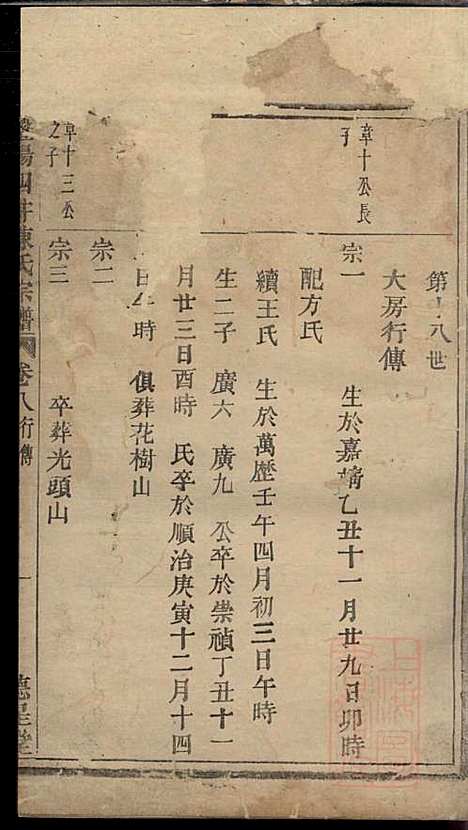 第十八世
大房行傳
章十公長子
宗一 生於嘉靖乙丑十一月廿九日卯時
配方氏
續王氏 生於萬歷壬午四月初三日午時
生二子 廣六 廣九 公卒於崇禎丁丑十一
月廿三日酉時 氏卒於順治庚寅十二月十四
日午時 俱葬花樹山
宗二
章十三公之子
宗三 卒葬光頭山
陽四井陳氏宗譜 卷八行傳 一 德星堂
上海圖